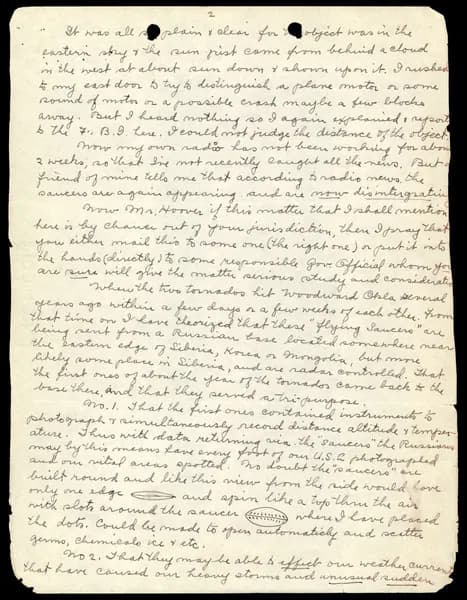 2
It was all plain & clear for the object was in the
eastern sky & the sun just came from behind a cloud
in the west at about sun down & shown upon it. I rushed
to my east door to try to distinguish a plane motor or some
sound of motor or a possible crash maybe a few blocks
away. But I heard nothing so I again explained & report
to the F. B. I. here. I could not judge the distance of the object.
Now my own radio has not been working for about
2 weeks, so that I've not recently caught all the news. But a
friend of mine tells me that according to radio news, the
saucers are again appearing and are now disintegrating
Now Mr. Hoover if this matter that I shall mention
here is by chance out of your jurisdiction, then I pray that
you either mail this to some one (the right one) or put it into
the hands (directly) to some responsible Gov. Official whom you
are sure will give the matter serious study and consideration
When the two tornados hit Woodward Okla several
years ago within a few days or a few weeks of each other. From
that time on I have theorized that these "flying Saucers" are
being sent from a Russian base located somewhere near
the eastern edge of Siberia, Korea or Mongolia, but more
likely some place in Siberia, and are radar controlled. That
the first ones of about the year of the tornados came back to the
base there, and that they served a tri-purpose.
No. 1. That the first ones contained instruments to
photograph & simultaneously record distance altitude & temper-
ature. Thus with data returning via the "saucers" the Russians
may by this means have every foot of our U.S.A. photographed
and our vital areas spotted. No doubt the "saucers" are
built round and like this view from the side would have
only one edge and spin like a top thru the air
with slots around the saucer where I have placed
the dots. Could be made to open automaticly and scatter
germs, chemicals ice & etc.
No 2. That they may be able to effect our weather current
that have caused our heavy storms and unusual sudden